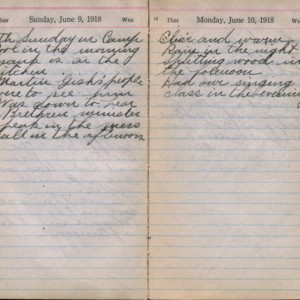 Sunday, June 9, 1918
th Sunday in Camp
in the morning
as in the
people
were to see him
Was down to hear
Brethren minister
speak in the mess
hall in the afternoon
13 Thur Monday, June 10, 1918
Clear and warm
Rain in the night
Splitting wood in
the forenoon
Had our singing
class in the evening